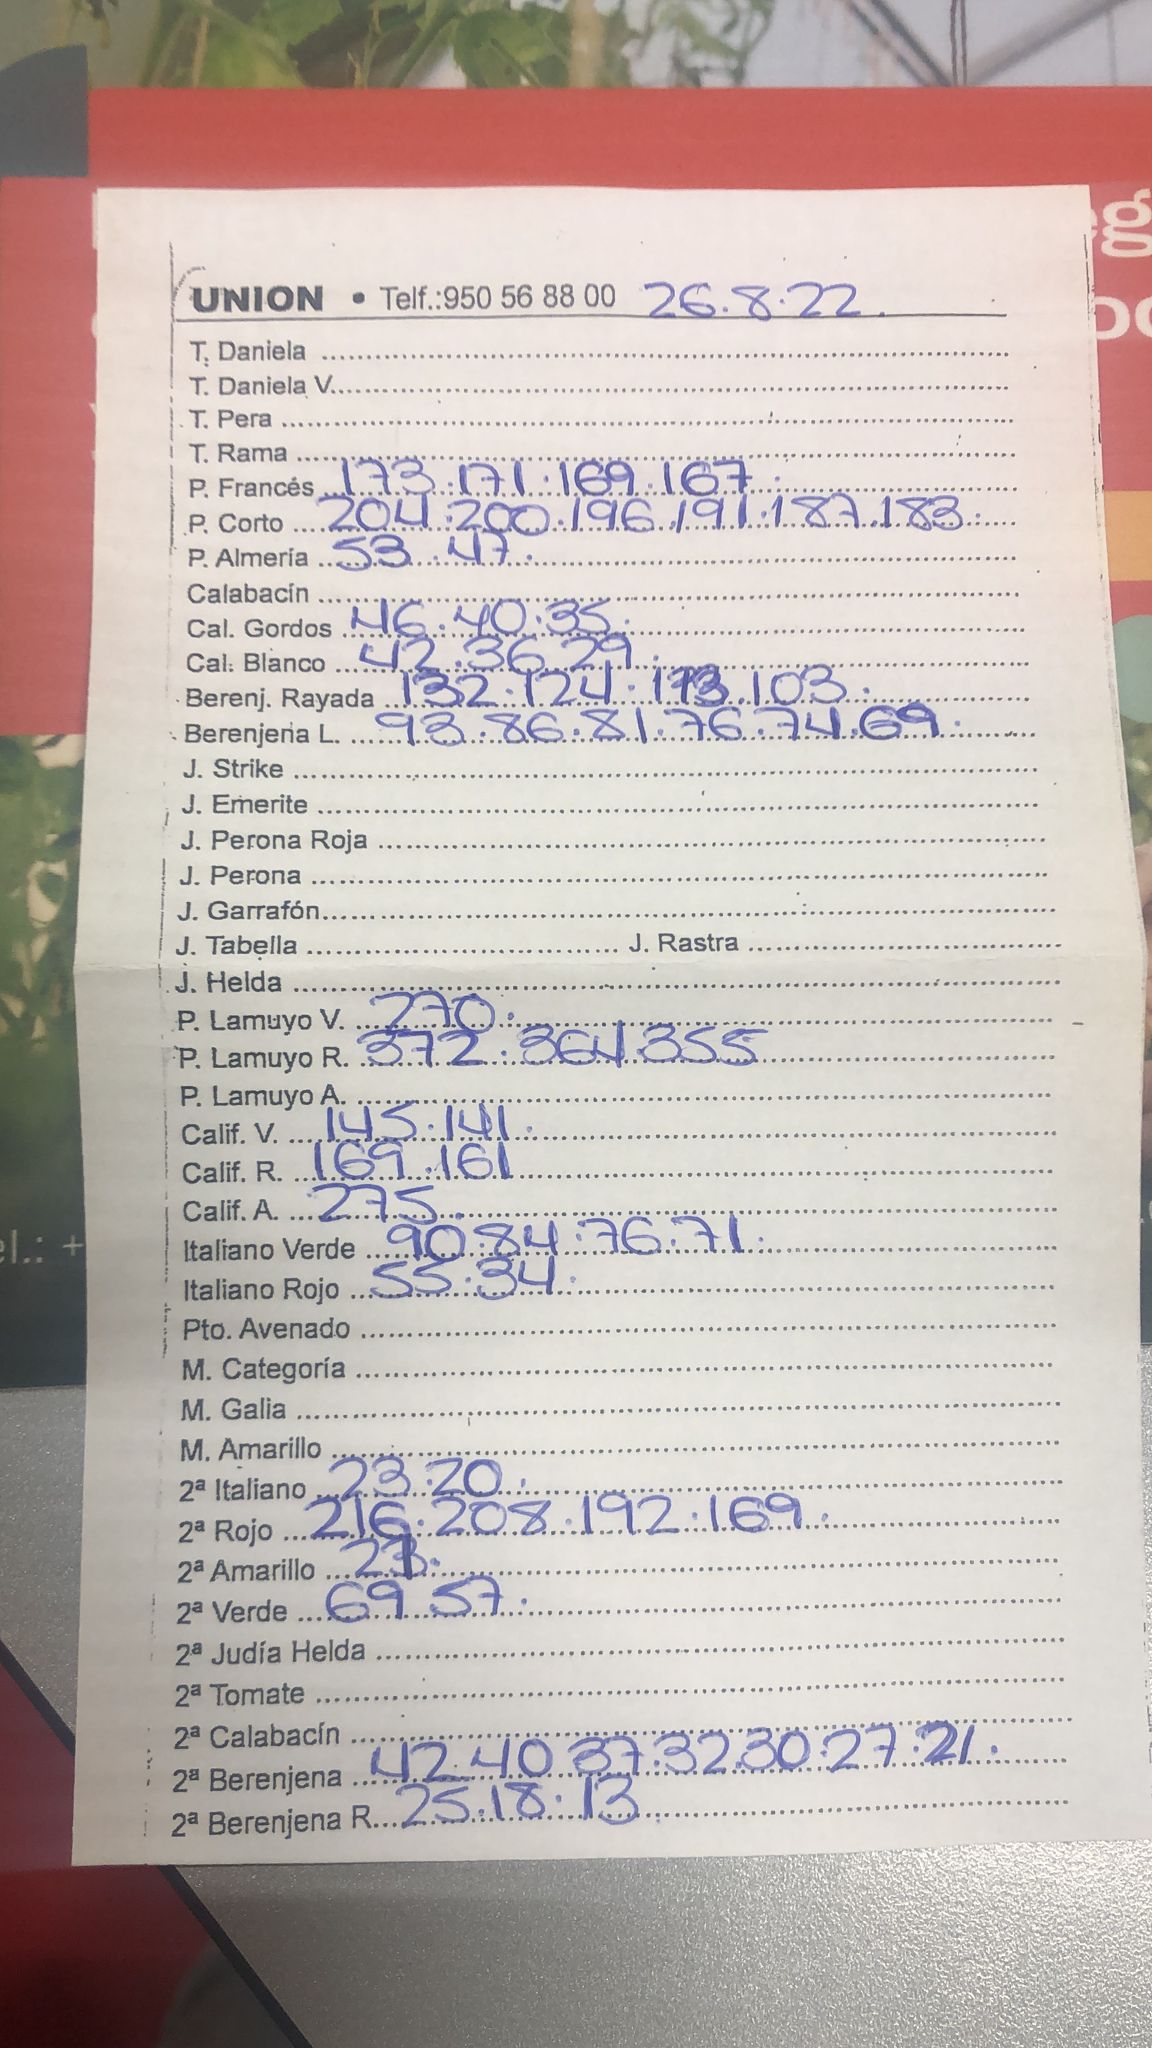 UNION • Telf.:950 56 88 00 26.8.22.
T. Daniela
T. Daniela V.
T. Pera
T. Rama
P. Francés 173.171.169.167.
P. Corto 204.200.196.191.187.183.
P. Almería 53.47.
Calabacín
Cal. Gordos 46.40.35.
Cal. Blanco 42.36.29.
Berenj. Rayada 132.124.113.103.
Berenjena L. 93.86.81.76.74.69.
J. Strike
J. Emerite
J. Perona Roja
J. Perona
J. Garrafón
J. Tabella J. Rastra
J. Helda
P. Lamuyo V. 270.
P. Lamuyo R. 372.364.355
P. Lamuyo A.
Calif. V. 145.141.
Calif. R. 169.161
Calif. A. 275.
Italiano Verde 90.84.76.71.
Italiano Rojo 55.34.
Pto. Avenado
M. Categoría
M. Galia
M. Amarillo
2ª Italiano 23.20.
2ª Rojo 216.208.192.169.
2ª Amarillo
2ª Verde 69.57.
2ª Judía Helda
2ª Tomate
2ª Calabacín
2ª Berenjena 42.40.37.32.30.27.21.
2ª Berenjena R. 25.18.13.